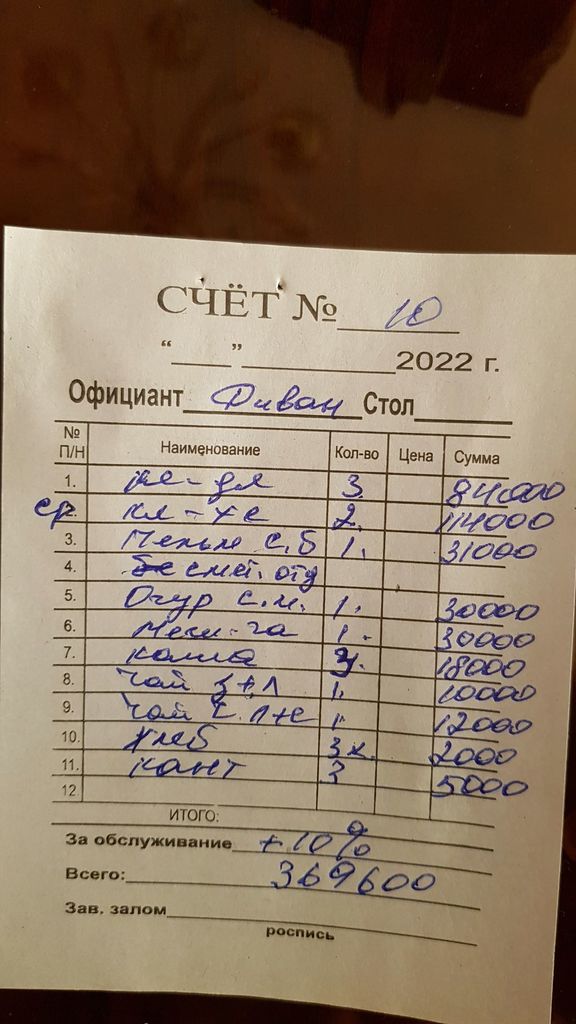 СЧЁТ № 10
"____"______________2022 г.
Официант Диван Стол
№ П/Н Наименование Кол-во Цена Сумма
1. 3 84000
ср 2. кл-хе 2. 114000
3. Пельм с.б 1. 31000
4. смет. отд
5. Огур с.м. 1. 30000
6. 1. 30000
7. 18000
8. Чай з+л 1. 10000
9. Чай ч.л+с 1. 12000
10. хлеб 3х. 2000
11. конт 3 5000
12.
ИТОГО:
За обслуживание +10%
Всего: 369600
Зав. залом
роспись